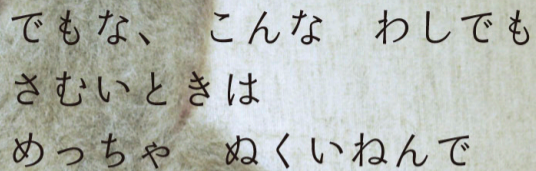 でもな、　こんな　わしでも
さむいときは
めっちゃ　ぬくいねんで